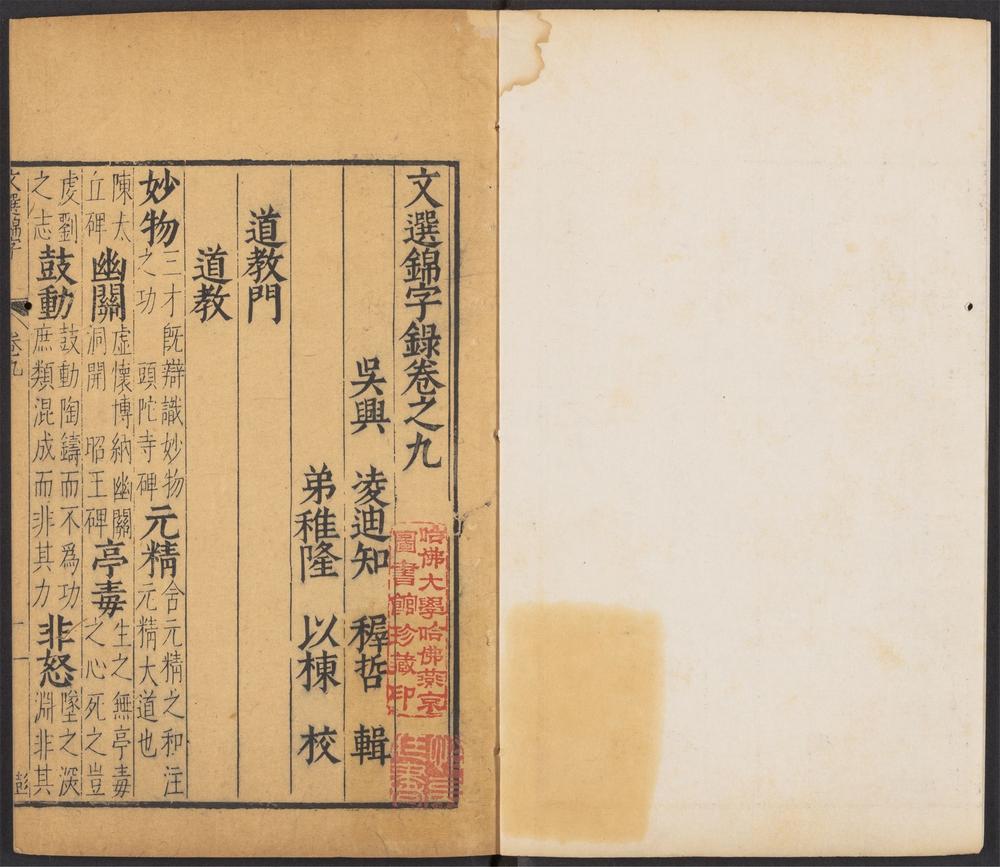 文選錦字錄卷之九
吳興 凌迪知 穉哲 輯
弟稚隆 以棟 校
道教門
道教
妙物三才既辯識妙物之功 頭陀寺碑元精含元精之和注元精大道也
陳太丘碑幽關虛懷博納幽關洞開 昭王碑亭毒生之無亭毒之心死之豈
虔劉之志鼓動鼓動陶鑄而不爲功庶類混成而非其力非怒墜之深淵非其
文選錦字 卷九 一 彭
哈佛大學哈佛燕京
圖書館珍藏印